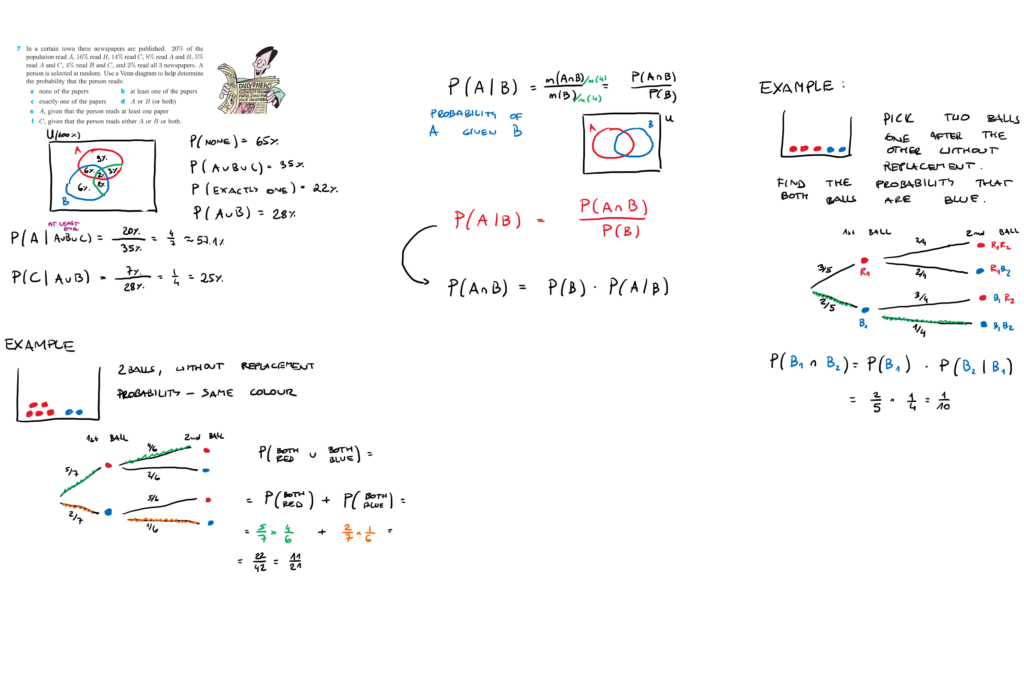 7 In a certain town three newspapers are published. 20% of the
population read A, 16% read B, 14% read C, 8% read A and B, 5%
read A and C, 4% read B and C, and 2% read all 3 newspapers. A
person is selected at random. Use a Venn diagram to help determine
the probability that the person reads:
a none of the papers b at least one of the papers
c exactly one of the papers d A or B (or both)
e A, given that the person reads at least one paper
f C, given that the person reads either A or B or both.
DAILY NEWS
U(100%)
A
9%
6%
3%
2
6%
2%
B
P(NONE) = 65%
P(A∪B∪C) = 35%
P(EXACTLY ONE) = 22%
P(A∪B) = 28%
AT LEAST
ONE
P(A | A∪B∪C) = 20%/35% = 4/7 ≈ 57.1%
P(C | A∪B) = 7%/28% = 1/4 = 25%
EXAMPLE
2 BALLS, WITHOUT REPLACEMENT
PROBABILITY - SAME COLOUR
1st BALL 2nd BALL
5/7
4/6
2/6
2/7
5/6
1/6
P(BOTH RED ∪ BOTH BLUE) =
= P(BOTH RED) + P(BOTH BLUE) =
= 5/7 × 4/6 + 2/7 × 1/6 =
= 22/42 = 11/21
P(A | B) = n(A∩B)/n(U) / n(B)/n(U) = P(A∩B)/P(B)
PROBABILITY OF
A GIVEN B
A
B
U
P(A | B) = P(A∩B)/P(B)
P(A∩B) = P(B) · P(A|B)
EXAMPLE:
PICK TWO BALLS
ONE AFTER THE
OTHER WITHOUT
REPLACEMENT.
FIND THE PROBABILITY THAT
BOTH BALLS ARE BLUE.
1st BALL 2nd BALL
3/5
R1
2/4
R1R2
2/4
R1B2
2/5
B1
3/4
B1R2
1/4
B1B2
P(B1 ∩ B2) = P(B1) · P(B2 | B1)
= 2/5 × 1/4 = 1/10